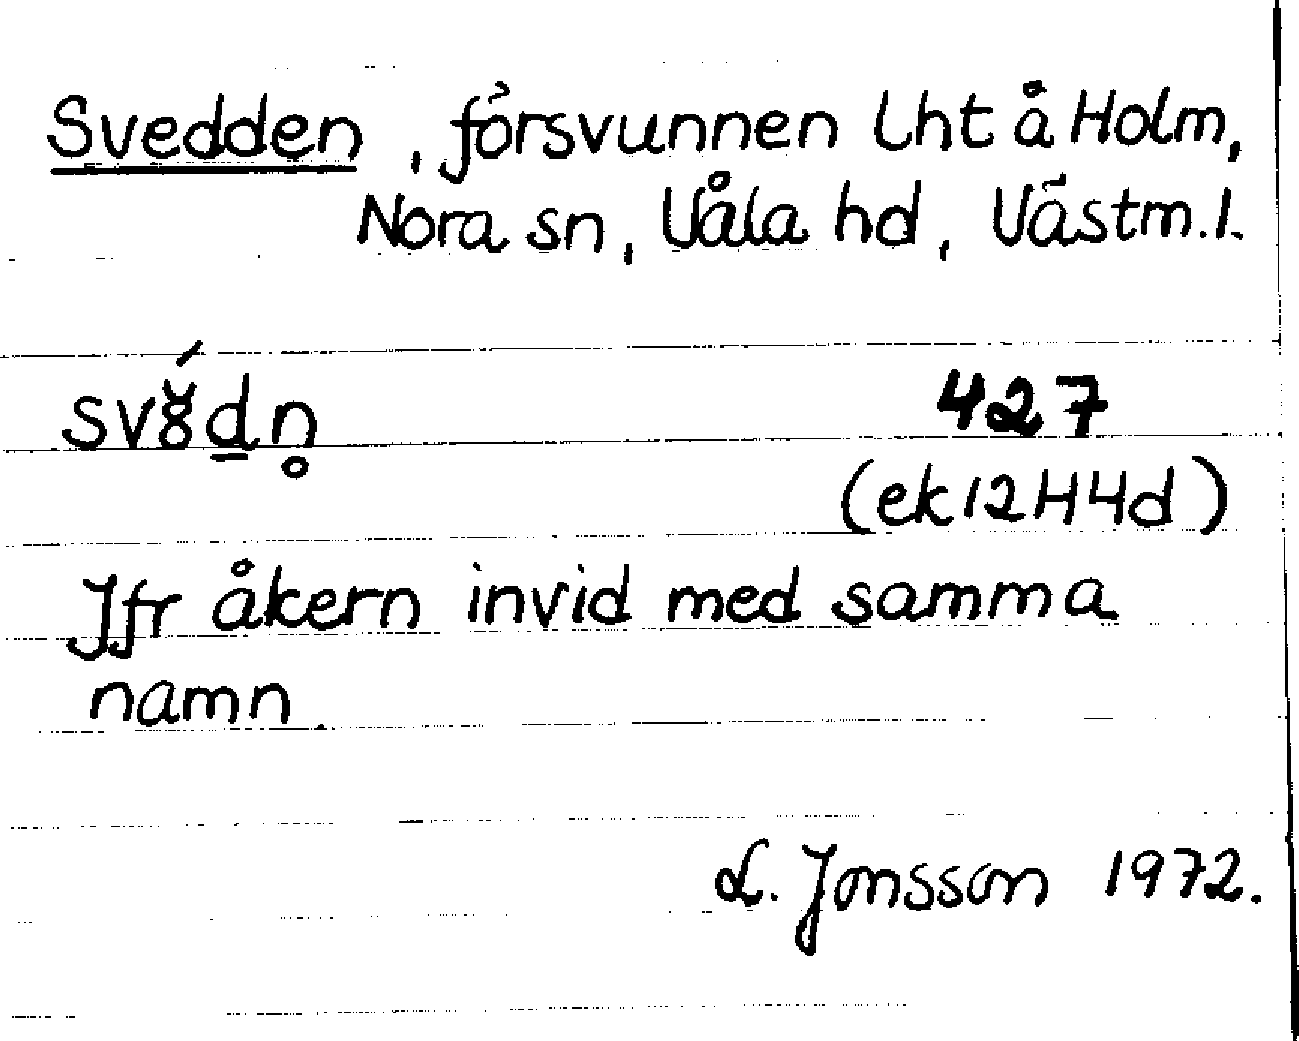 Svedden, försvunnen Lht å Holm,
Nora sn, Våla hd, Västm.l.
427
(ek 12H4d)
Jfr åkern invid med samma
namn.
L. Jonsson 1972.